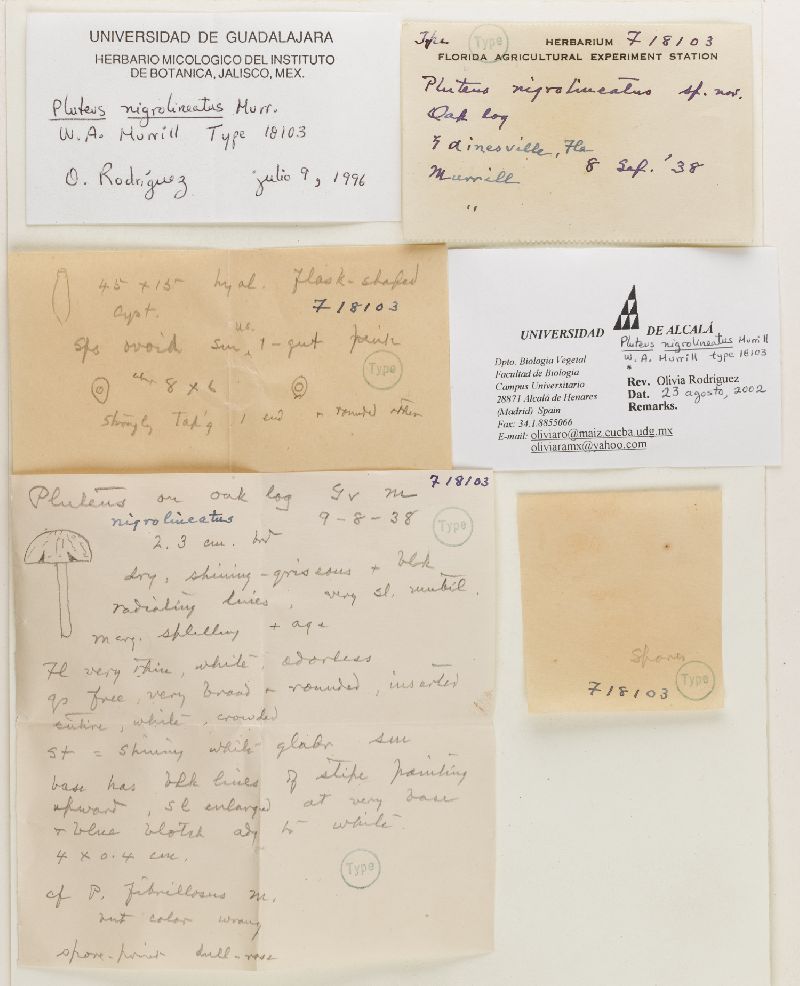 UNIVERSIDAD DE GUADALAJARA
HERBARIO MICOLOGICO DEL INSTITUTO
DE BOTANICA, JALISCO, MEX.
Pluteus nigrolineatus Murr.
W. A. Murrill Type 18103
O. Rodríguez julio 9, 1996
Type Type HERBARIUM F 18103
FLORIDA AGRICULTURAL EXPERIMENT STATION
Pluteus nigrolineatus sp. nov.
Oak log
Gainesville, Fla
8 Sep. '38
Murrill
"
45 x 15 hyal. flask-shaped
cyst.
F 18103
sps ovoid sm, 1-gut pink
us.
Type
8 x 6
strongly tap'g 1 end rounded other
UNIVERSIDAD DE ALCALÁ
Pluteus nigrolineatus Murrill
W. A. Murrill type 18103
*
Dpto. Biología Vegetal
Facultad de Biología
Campus Universitario
28871 Alcalá de Henares
(Madrid) Spain
Fax: 34.1.8855066
E-mail: oliviaro@maiz.cucba.udg.mx
oliviaramx@yahoo.com
Rev. Olivia Rodríguez
Dat. 23 agosto, 2002
Remarks.
F 18103
Pluteus on oak log Gv M
nigrolineatus 9-8-38
Type
2.3 cm. br
dry, shining-griseous + blk
radiating lines, very sl. umbil.
marg. splitting + age
Fl very thin, white, odorless
gs free, very broad + rounded, inserted
entire, white, crowded
st = shining white glabr sm
base has blk lines of stipe pointing
upward, sl enlarged at very base
+ blue blotch adj to white.
4 x 0.4 cm.
Type
cf P. fibrillosus M.
but color wrong
spore-print dull-rose
Spores
F 18103
Type